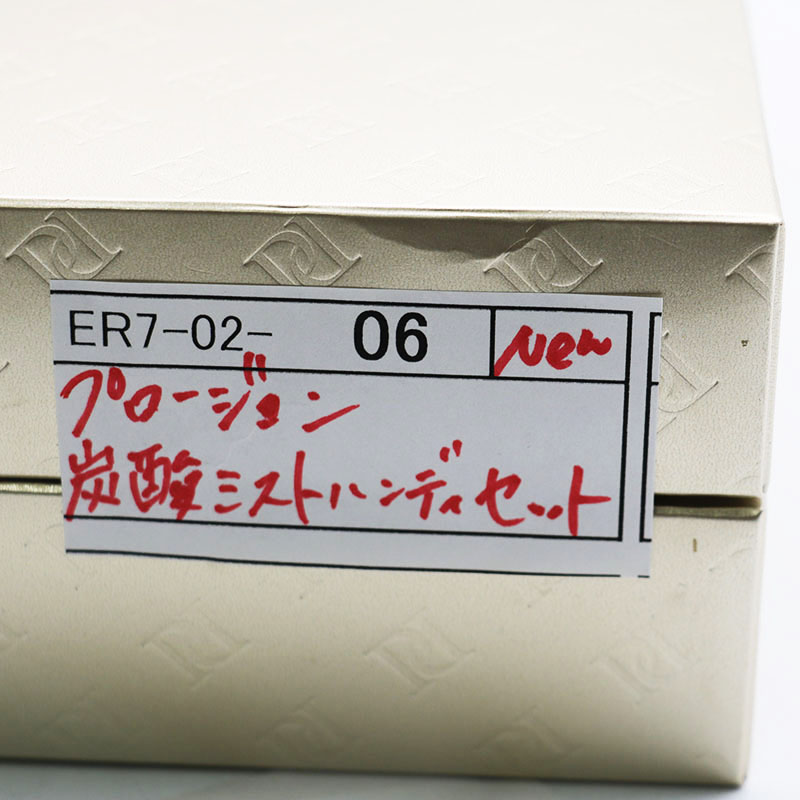 ER7-02- 06 New
プロージョン
炭酸ミストハンディセット